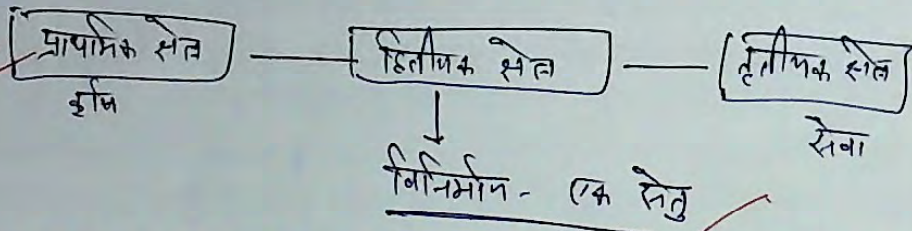 प्राथमिक क्षेत्र — द्वितीयक क्षेत्र — तृतीयक क्षेत्र
कृषि
सेवा
विनिर्माण - एक सेतु